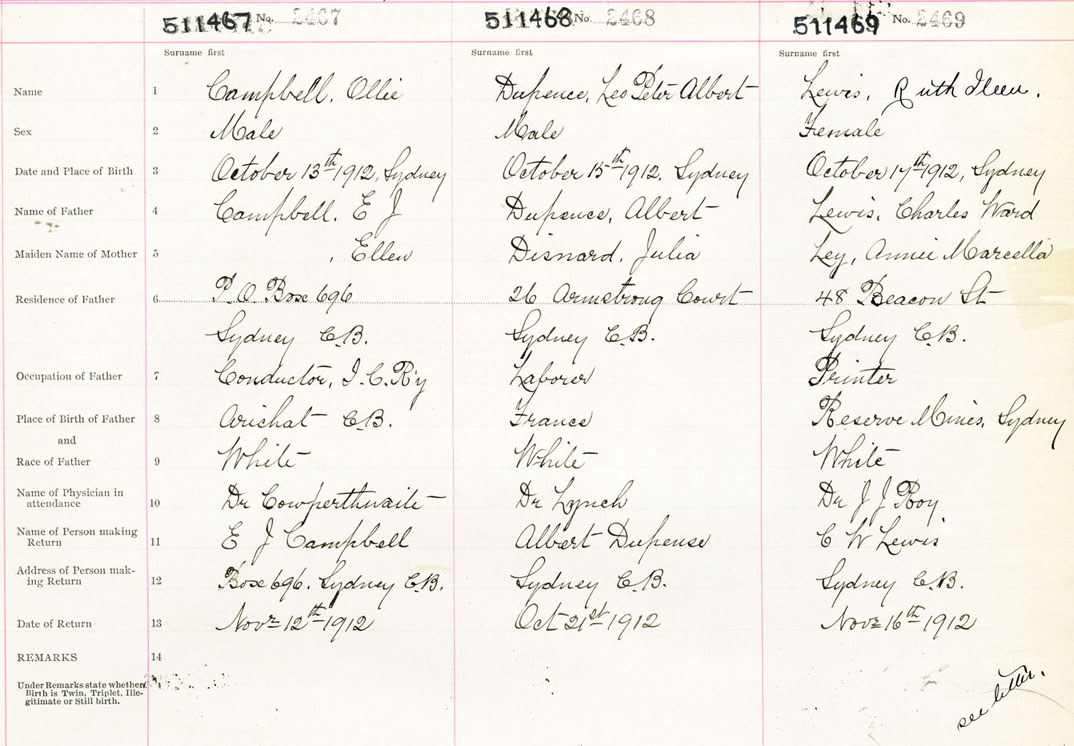 511467 No. 2467 511468 No. 2468 511469 No. 2469
Surname first Surname first Surname first
Name 1 Campbell, Ollie Dupence, Leo Peter Albert Lewis, Ruth Ileen.
Sex 2 Male Male Female
Date and Place of Birth 3 October 13th 1912, Sydney October 15th 1912, Sydney October 17th 1912, Sydney
Name of Father 4 Campbell, E J Dupence, Albert Lewis, Charles Ward
Maiden Name of Mother 5 , Ellen Disnard, Julia Ley, Annie Marcella
Residence of Father 6 P.O. Box 696 26 Armstrong Court 48 Beacon St
Sydney C.B. Sydney C.B. Sydney C.B.
Occupation of Father 7 Conductor, I.C.R'y Laborer Printer
Place of Birth of Father 8 Arichat C.B. France Reserve Mines, Sydney
and
Race of Father 9 White White White
Name of Physician in
attendance 10 Dr Cowperthwaite Dr Lynch Dr J J Roy
Name of Person making
Return 11 E J Campbell Albert Dupense C W Lewis
Address of Person mak-
ing Return 12 Box 696. Sydney C.B. Sydney C.B. Sydney C.B.
Date of Return 13 Novr 12th 1912 Oct 21st 1912 Novr 16th 1912
REMARKS 14
Under Remarks state whether
Birth is Twin, Triplet, Ille-
gitimate or Still birth.
see letter.